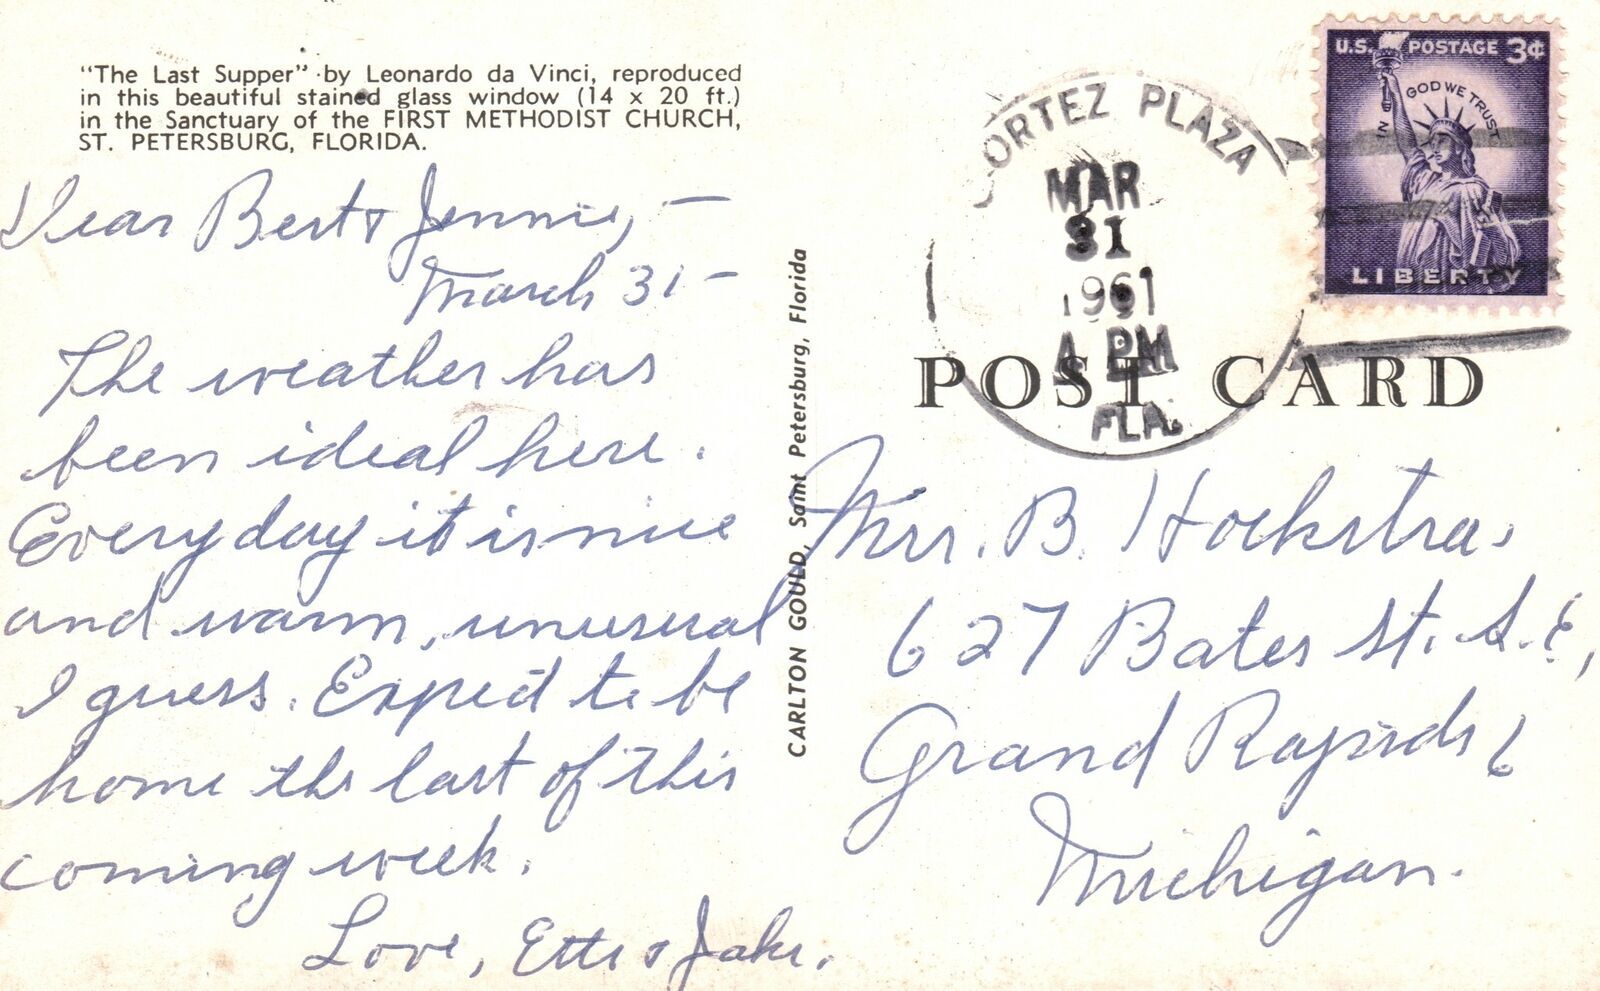 "The Last Supper" by Leonardo da Vinci, reproduced
in this beautiful stained glass window (14 x 20 ft.)
in the Sanctuary of the FIRST METHODIST CHURCH,
ST. PETERSBURG, FLORIDA.
Dear Bert & Jennie, —
March 31 –
The weather has
been ideal here.
Everyday it is nice
and warm, unusual
I guess. Expect to be
home the last of this
coming week.
Love, Ette & Jake.
CARLTON GOULD, Saint Petersburg, Florida
CORTEZ PLAZA
MAR
31
1961
PM
FLA.
U.S. POSTAGE 3¢
IN GOD WE TRUST
LIBERTY
POST CARD
Mrs. B. Hoekstra,
627 Bates St. S.E,
Grand Rapids 6
Michigan.